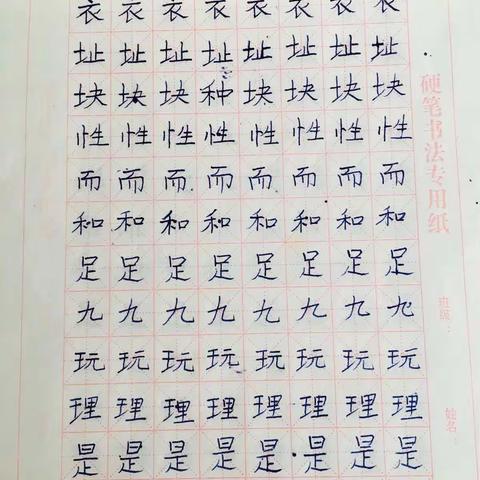 衣衣衣衣衣衣衣衣
址址址址址址址址
块块块种块块块块
性性性性性性性性
而而而而而而而而
和和和和和和和和
足足足足足足足足
九九九九九九九九
玩玩玩玩玩玩玩玩
理理理理理理理理
是是是是是是是是
硬笔书法专用纸
班级：
姓名：